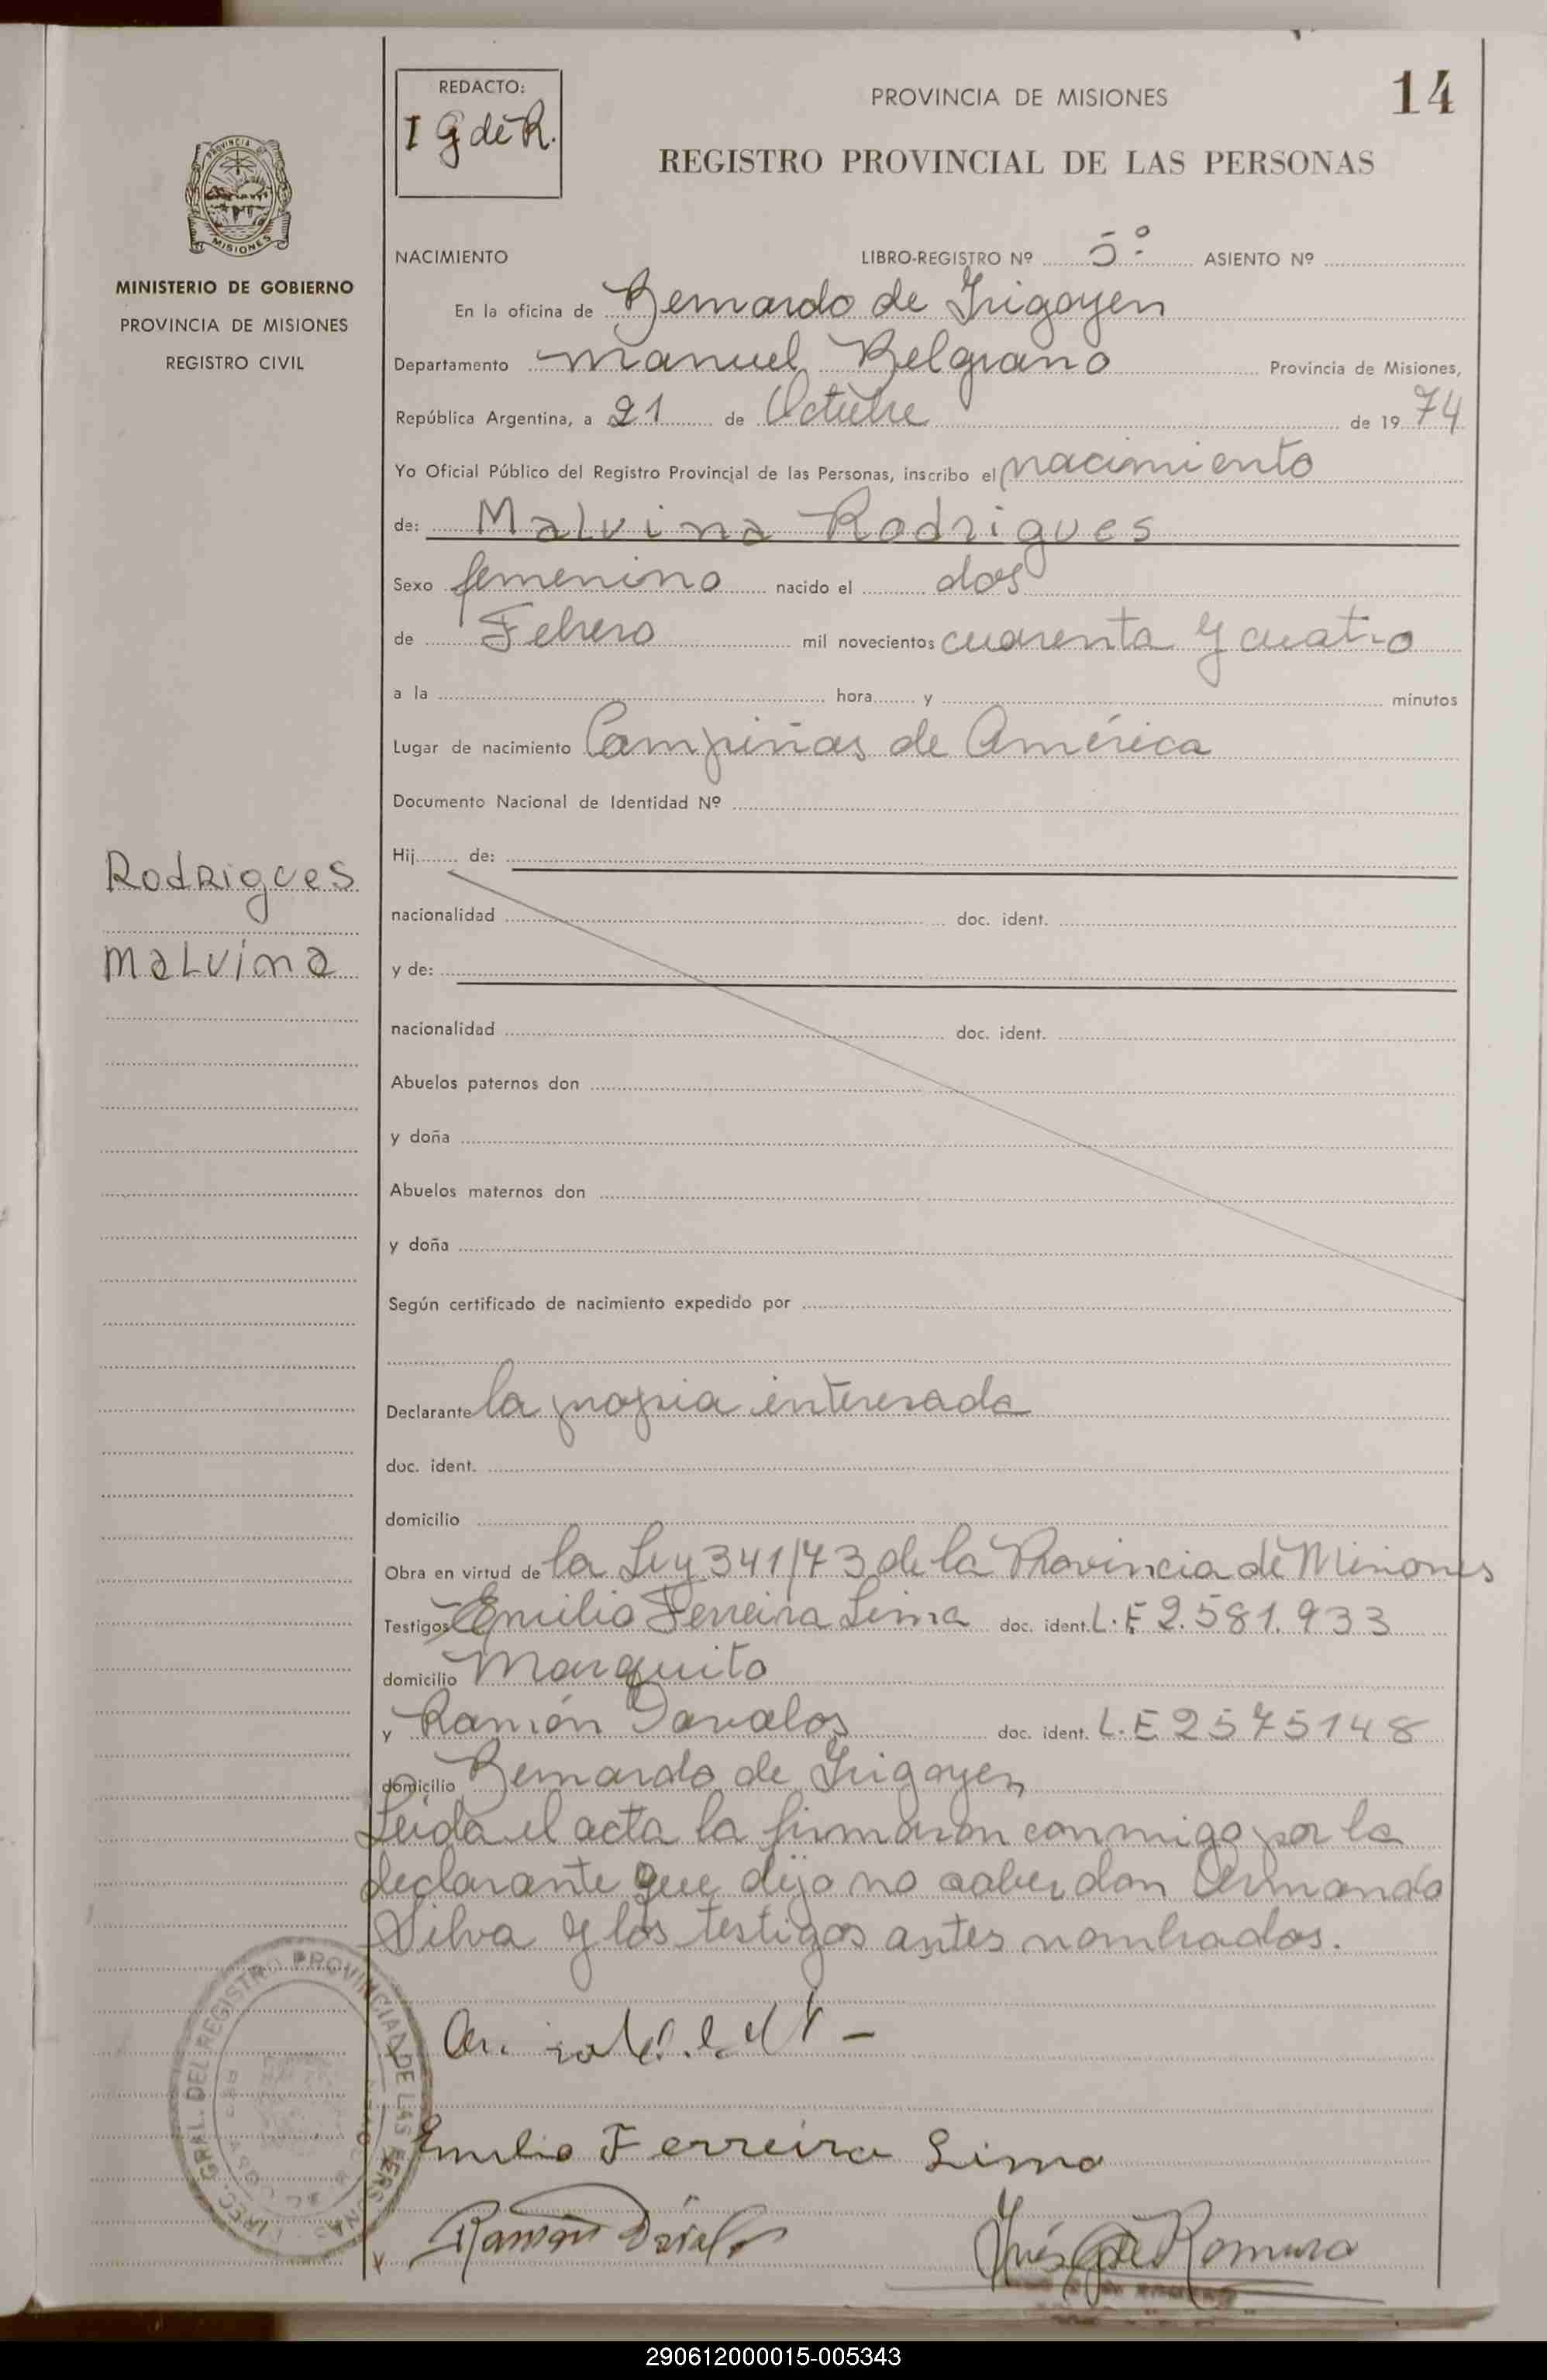 REDACTO:
I G de R.
PROVINCIA DE MISIONES
14
REGISTRO PROVINCIAL DE LAS PERSONAS
MISIONES
MINISTERIO DE GOBIERNO
PROVINCIA DE MISIONES
REGISTRO CIVIL
NACIMIENTO LIBRO-REGISTRO Nº 5º ASIENTO Nº
En la oficina de Bernardo de Irigoyen
Departamento Manuel Belgrano Provincia de Misiones,
República Argentina, a 21 de Octubre de 1974
Yo Oficial Público del Registro Provincial de las Personas, inscribo el nacimiento
de: Malvina Rodrigues
Sexo femenino nacido el dos
de Febrero mil novecientos cuarenta y cuatro
a la hora y minutos
Lugar de nacimiento Campiñas de América
Documento Nacional de Identidad Nº
Hij de:
nacionalidad doc. ident.
y de:
nacionalidad doc. ident.
Abuelos paternos don
y doña
Abuelos maternos don
y doña
Según certificado de nacimiento expedido por
Rodrigues
Malvina
Declarante la propia interesada
doc. ident.
domicilio
Obra en virtud de la Ley 341/73 de la Provincia de Misiones
Testigos Emilio Ferreira Lima doc. ident. L.E 2.581.933
domicilio Marquito
y Ramón Davalos doc. ident. L.E 2575148
domicilio Bernardo de Irigoyen
Leída el acta la firmaron conmigo por la
declarante que dijo no saber don Armando
Silva y los testigos antes nombrados.
DIREC. GRAL. DEL REGISTRO PROVINCIAL DE LAS PERSONAS
Emilio Ferreira Lima
Ramón
Inés G de Romero
290612000015-005343